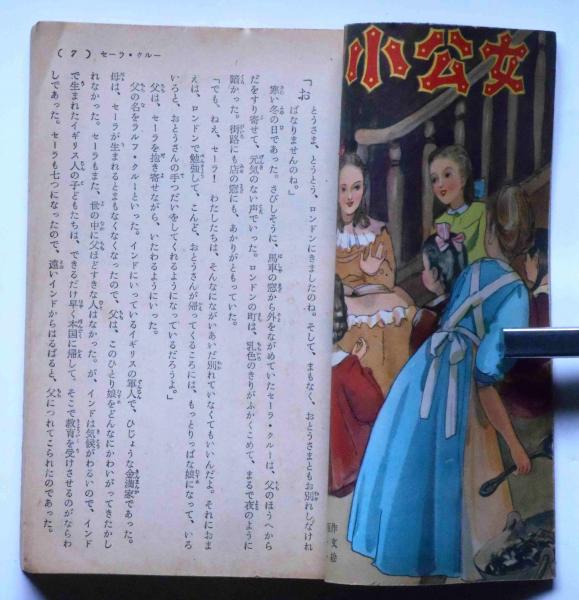 小公女
作
文
絵
（7） セーラ・クルー
「おとうさま、とうとう、ロンドンにきましたのね。そして、まもなく、おとうさまともお別れしなけれ
ばなりませんのね。」
寒い冬の日であった。さびしそうに、馬車の窓から外をながめていたセーラ・クルーは、父のほうへから
だをすり寄せて、元気のない声でいった。ロンドンの町は、乳色のきりがふかくこめて、まるで夜のように
暗かった。街路にも店の窓にも、あかりがともっていた。
「でも、ねえ、セーラ！ わたしたちは、そんなにながいあいだ別れていなくてもいいんだよ。それにおま
えは、ロンドンで勉強して、こんど、おとうさんが帰ってくるころには、もっとりっぱな娘になって、いろ
いろと、おとうさんの手つだいをしてくれるようになっているだろうよ。」
父は、セーラを抱き寄せながら、いたわるようにいった。
父の名をラルフ・クルーといった。インドにいっているイギリスの軍人で、ひじょうな金満家であった。
母は、セーラが生まれるとまもなくなくなったので、父は、このひとり娘をどんなにかわいがってきたかし
れなかった。セーラもまた、世の中に父ほどすきな人はなかった。が、インドは気候がわるいので、インド
で生まれたイギリス人の子どもたちは、できるだけ早く本国に帰して、そこで教育を受けさせるのがならわ
しであった。セーラも七つになったので、遠いインドからはるばると、父につれてこられたのであった。